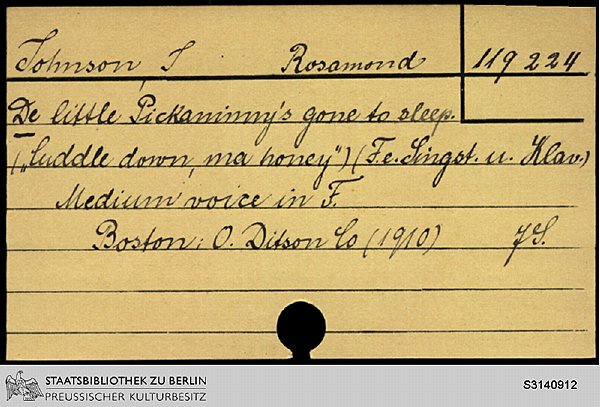 Johnson, J Rosamond 119 224
De little Pickaninny's gone to sleep.
("Cuddle down, ma honey") (F.e. Singst. u. Klav.)
Medium voice in F.
Boston: O. Ditson Co (1910) 7 S.
STAATSBIBLIOTHEK ZU BERLIN
PREUSSISCHER KULTURBESITZ
S3140912